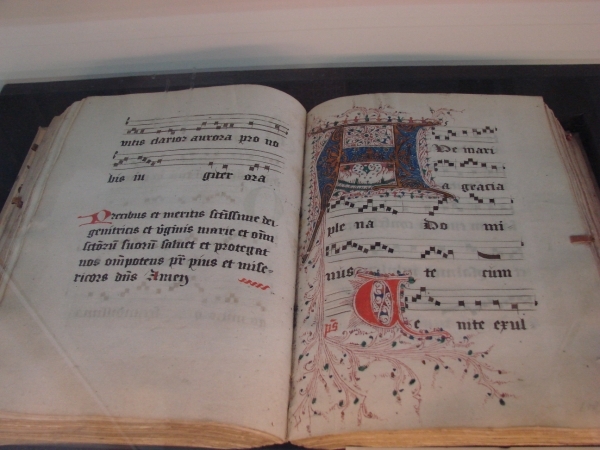 vitis clarior aurora pro no
bis iu giter ora
Precibus et meritis sc̄tissime dei
genitricis et v̄ginis marie et om̄i
sc̄torū suorū saluet et protegat
nos om̄ipotens pr̄ pius et mise
ricors dn̄s Amen
A ve mari
a gracia
ple na Do mi
nus te cum
ps̄ Ve nite exul